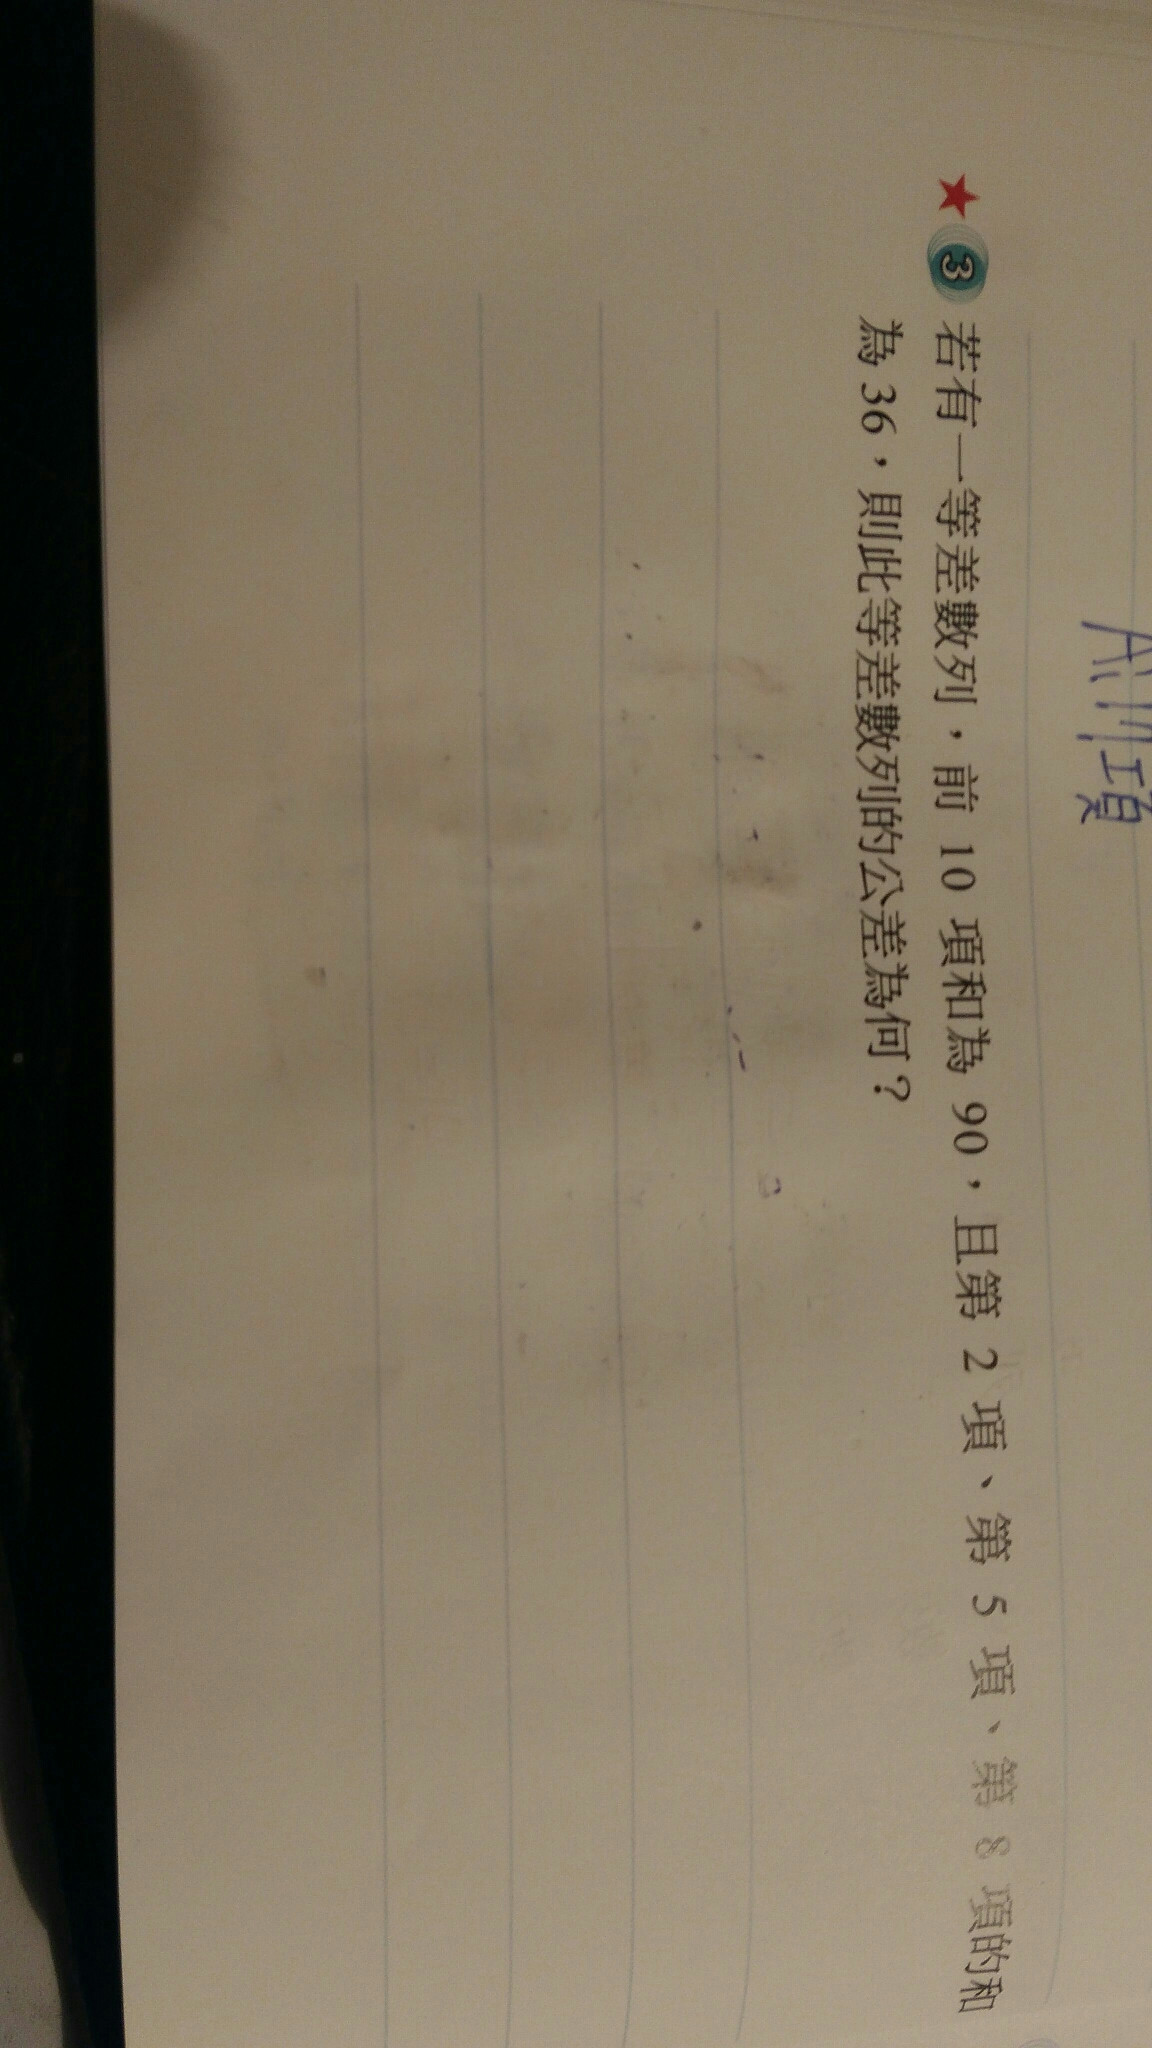 3 若有一等差數列，前 10 項和為 90，且第 2 項、第 5 項、第 8 項的和
為 36，則此等差數列的公差為何？